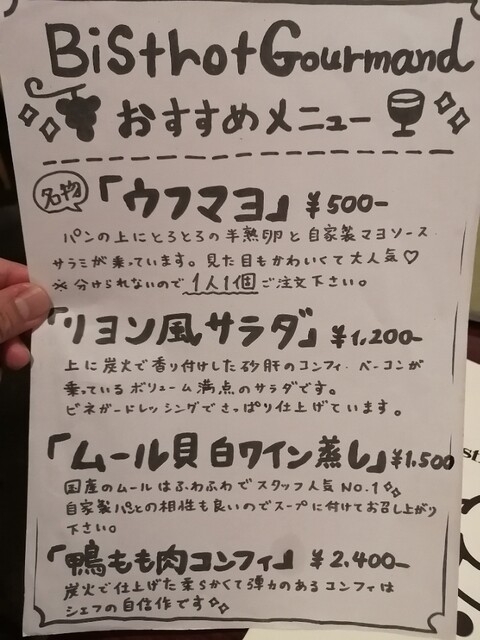 BiSthotGourmand
おすすめメニュー
名物
「ウフマヨ」 ¥500-
パンの上にとろとろの半熟卵と自家製マヨソース
サラミが乗っています。見た目もかわいくて大人気♡
※分けられないので1人1個ご注文下さい。
「リヨン風サラダ」 ¥1,200-
上に炭火で香り付けした砂肝のコンフィ・ベーコンが
乗っているボリューム満点のサラダです。
ビネガードレッシングでさっぱり仕上げています。
「ムール貝白ワイン蒸し」 ¥1,500
国産のムールはふわふわでスタッフ人気NO.1
自家製パンとの相性も良いのでスープに付けてお召し上がり
下さい。
「鴨もも肉コンフィ」 ¥2,400-
炭火で仕上げた柔らかくて弾力のあるコンフィは
シェフの自信作です